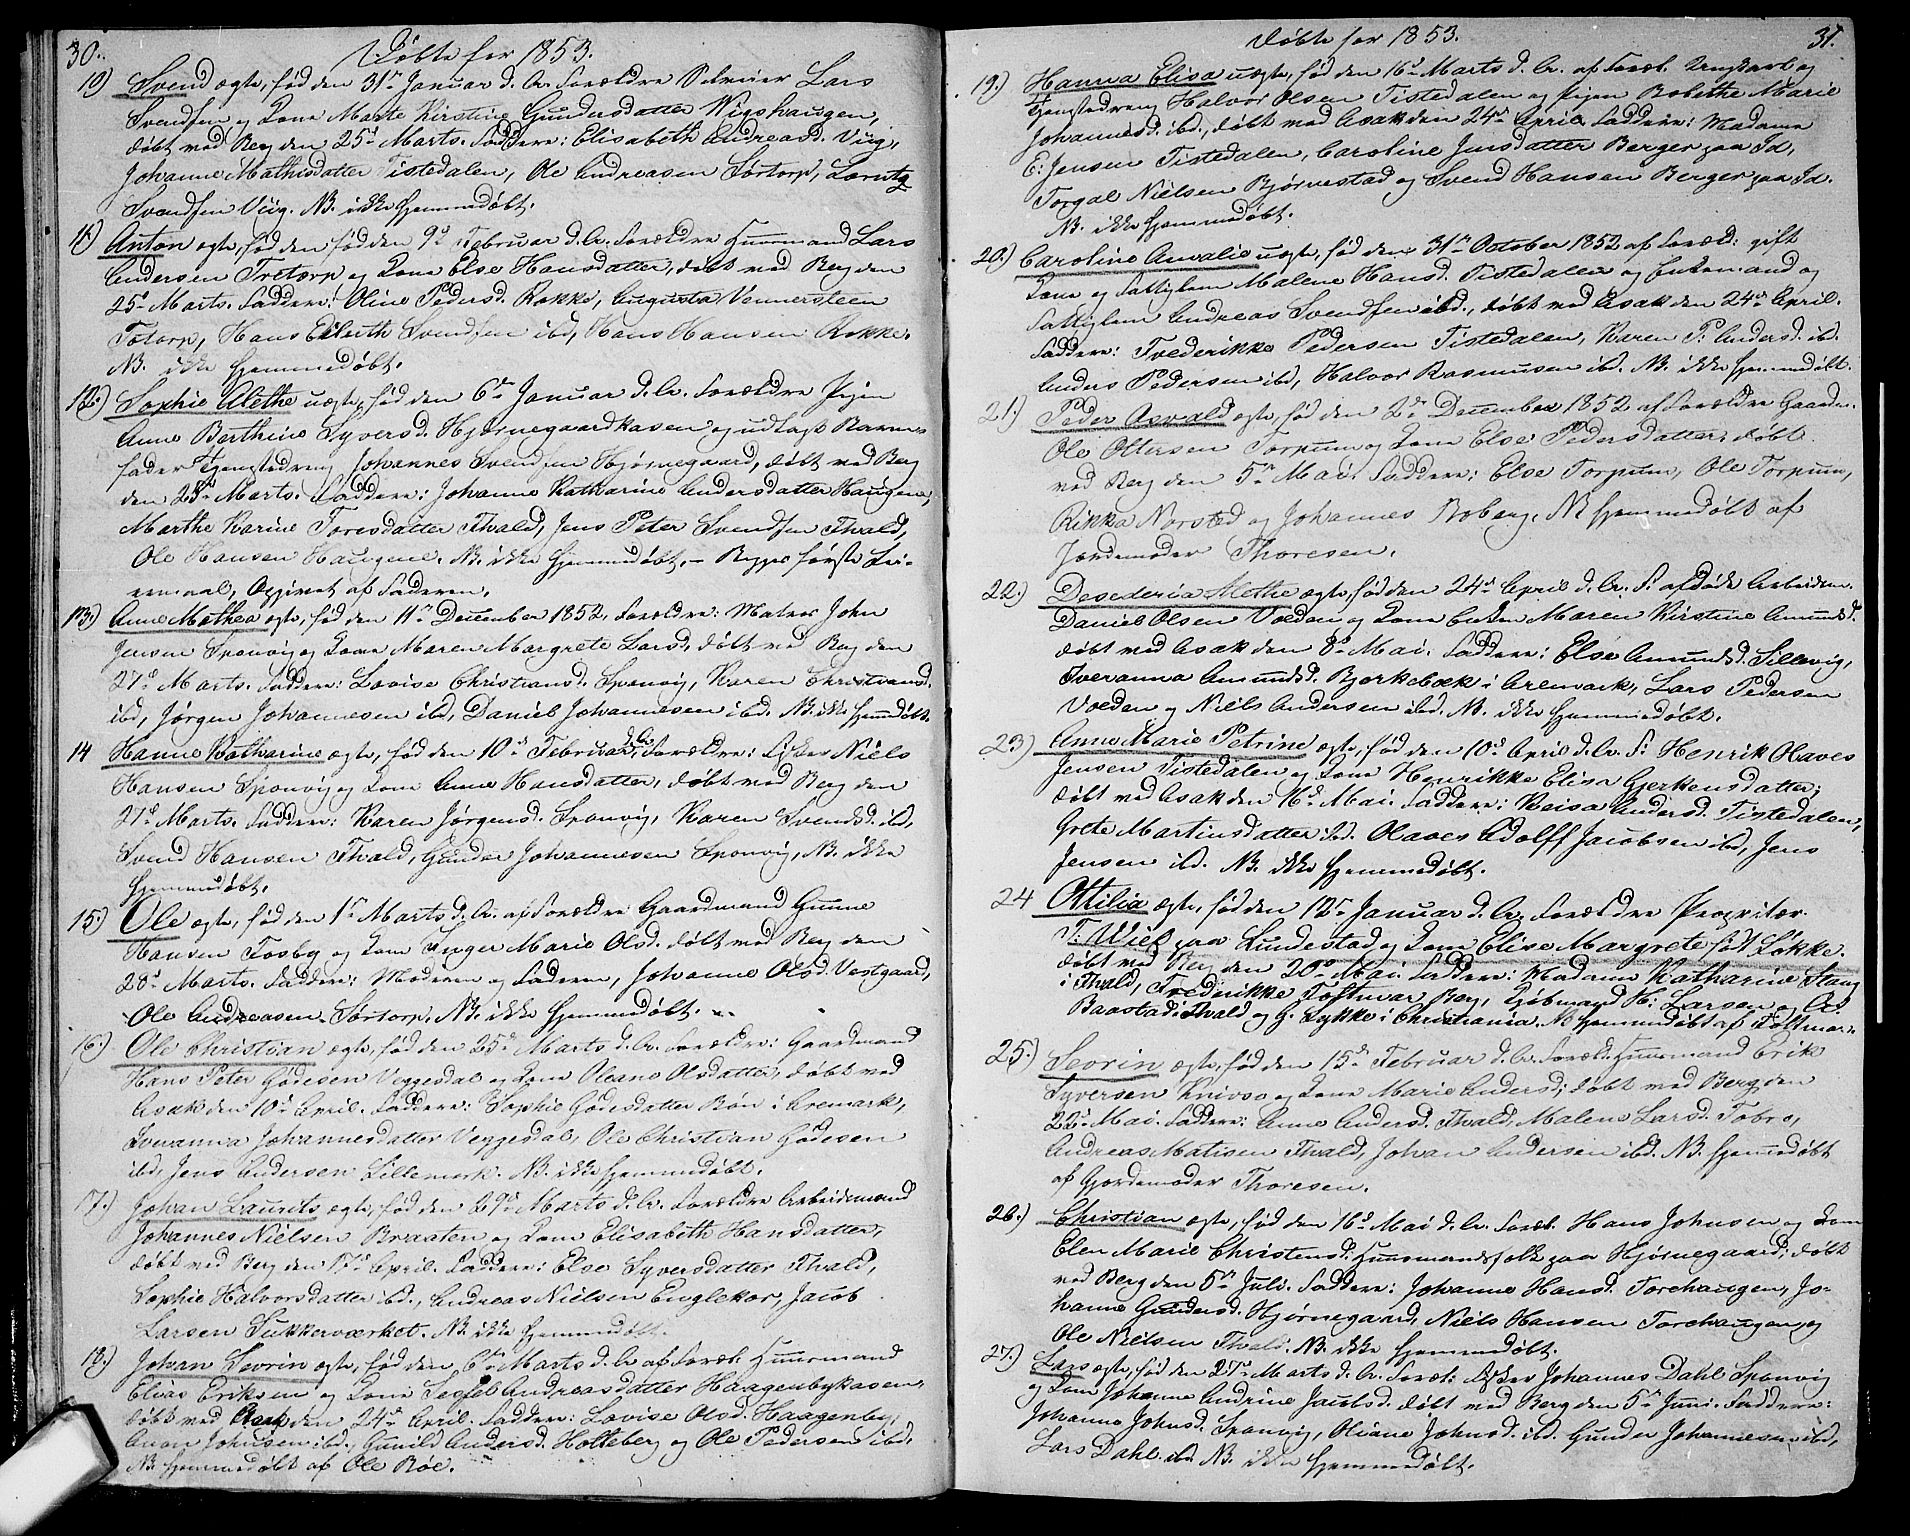 30.
Døbte for 1853.
10) Svend ægte, fød den 31te Januar d. A. Forældre Selveier Lars
Svendsen og Kone Marte Kirstine Gundersdatter Wigshaugen,
døbt ved Berg den 25de Marts. Faddere: Elisabeth Andreasd. Viig,
Johanne Mathisdatter Tistedalen, Ole Andreasen Sørtorp, Lorentz
Svendsen Viig. NB. ikke hjemmedøbt.
11) Anton ægte, fød den fød den 9de Februar d. A. Forældre Huusmand Lars
Andersen Tretorp og Kone Else Hansdatter, døbt ved Berg den
25de Marts. Faddere: Oline Pedersd. Rokke, Augusta Vennersteen
Totorp, Hans Eilerth Svendsen ibd, Hans Hansen Rokke.
NB. ikke hjemmedøbt.
12.) Sophie Alethe uægte, fød den 6te Januar d. A. Forældre Pigen
Anne Berthine Syversd. Hjørnegaardkasen og udlagt Barne-
fader Tjenestedreng Johannes Svendsen Hjørnegaard, døbt ved Berg
den 25de Marts. Faddere: Johanne Katharine Andersdatter Haugene,
Marthe Karine Toresdatter Thvald, Jens Peter Svendsen Thvald,
Ole Hansen Haugene. NB. ikke hjemmedøbt. – Begges første Lei-
ermaal, Opgivet af Faderen.
13.) Anne Mathea ægte, fød den 11te December 1852. Forældre: Matros John
Jensen Sponvig og Kone Maren Margrete Larsd, døbt ved Berg den
27de Marts. Faddere: Lovise Christiansd. Sponvig, Karen Christiansd.
ibd, Jørgen Johannesen ibd, Daniel Johannesen ibd. NB. ikke hjemmdøbt.
14 Hanne Katharine ægte, fød den 10de Februar d. A. Forældre: Fisker Niels
Hansen Sponvig og Kone Anne Hansdatter, døbt ved Berg den
27de Marts. Faddere: Karen Jørgensd. Sponvig, Karen Svendsd. ibd,
Svend Hansen Thvald, Gunder Johannesen Sponvig, NB. ikke
hjemmedøbt.
15.) Ole ægte, fød den 1te Marts d. A. af Forældre Gaardmand Gunne
Hansen Fosby og Kone Inger Marie Olsd. døbt ved Berg den
28de Marts. Faddere: Moderen og Faderen, Johanne Olsd. Vestgaard,
Ole Andreasen Sørtorp. NB. ikke hjemmedøbt.
16.) Ole Christian ægte, fød den 25de Marts d. A. Forældre: Gaardmand
Hans Peter Gødesen Veggesdal og Kone Oleane Olsdatter, døbt ved
Asak den 10de April. Faddere: Sophie Gødesdatter Bøn i Aremark,
Iveranna Johannesdatter Veggesdal, Ole Christian Gødesen
ibd, Jens Andersen Lillemark. NB. ikke hjemmedøbt.
17.) Johan Laurits ægte, fød den 29de Marts d. A. Forældre Arbeidsmand
Johannes Nielsen Braaten og Kone Elisabeth Hansdatter,
døbt ved Berg den 17de April. Faddere: Else Syversdatter Thvald,
Sophie Halvorsdatter ibd., Andreas Nielsen Englekor, Jacob
Larsen Sukkerværket. NB. ikke hjemmedøbt.
18.) Johan Sevrin ægte, fød den 6te Marts d. A. af Foræl. Huusmand
Elias Eriksen og Kone Andreasdatter Haagenbykasen
døbt ved Asak den 24de April. Faddere: Lovise Olsd. Haagenby,
Johnsen ibd., Gunild Andersd. Holteberg og Ole Pedersen ibd,
NB. hjemmedøbt af Ole Bøe.
Døbte for 1853.
31.
19.) Hanna Elisa uægte, fød den 16de Marts d. A. af Foræl. Ungkarl og
Tjenestedreng Halvor Olsen Tistedalen og Pigen Bolethe Marie
Johannesd. ibd., døbt ved Asak den 24de April. Faddere: Madame
E. Jensen Tistedalen, Caroline Jensdatter Berger paa Id,
Torgal Nielsen Bjørnestad og Svend Hansen Berger paa Id.
NB. ikke hjemmedøbt.
20.) Caroline Amalie uægte, fød den 31te October 1852 af Foræld: gift
Kone og Fattiglem Malene Hansd. Tistedalen og Enkemand og
Fattiglem Andreas Svendsen ibd., døbt ved Asak den 24de April.
Faddere: Frederikke Pedersen Tistedalen, Karen P. Andersd. ibd.
Anders Pedersen ibd, Halvor Rasmusen ibd. NB. ikke hjemmedøbt.
21.) Peder Osvald ægte, fød den 2de December 1852 af Forældre Gaardm.
Ole Ottersen Torpum og Kone Else Pedersdatter, døbt
ved Berg den 5te Mai. Faddere: Else Torpum, Ole Torpum,
Rikka Norsted og Johannes Boberg, NB hjemmedøbt af
Jordemoder Thoresen.
22.) Desederia Methe ægte, fød den 24de April d. A. F. afdøde Arbeidsm.
Daniel Olsen Volden og Kone Enken Maren Kirstine Amundsd.
døbt ved Asak den 8de Mai. Faddere: Else Amundsd. Lillevig,
Iveranna Amundsd. Bjerkebæk i Aremark, Lars Pedersen
Volden og Niels Andersen ibd. NB. ikke hjemmedøbt.
23) Anne Marie Petrine ægte, fød den 10de April d. A. F. Henrik Olaves
Jensen Tistedalen og Kone Henrikke Elisa Gjerkensdatter,
døbt ved Asak den 16de Mai. Faddere: Keisa Andersd. Tistedalen,
Grete Martinsdatter ibd. Olaves Adolff Jacobsen ibd, Jens
Jensen ibd. NB. ikke hjemmedøbt.
24 Ottilia ægte, fød den 12te Januar d. A. Forældre Proprietær
T. Wiel paa Lundestad og Kone Elise Margrete født Løkke.
døbt ved Berg den 20de Mai. Faddere: Madame Katharine Stang
i Thvald, Frederikke Foltmar Berg, Kjøbmand H. Larsen og A.
Baastad i Thvald og G. Lykke i Christiania. NB hjemmedøbt af Foltmar.
25.) Sevrin ægte, fød den 15de Februar d. A. Foræld. Huusmand Erik
Syversen Knivsø og Kone Marie Andersd; døbt ved Berg den
22de Mai. Faddere: Anne Andersd. Thvald, Malene Larsd. Tobro,
Andreas Matisen Thvald, Johan Andersen ibd. NB. hjemmedøbt
af Gjordemoder Thoresen.
26.) Christian ægte, fød den 16de Mai d. A. Foræl. Hans Johnsen og Kone
Elen Marie Christensd. Huusmandsfolk paa Hjørnegaard; døbt
ved Berg den 5te Juli. Faddere: Johanne Hansd. Torehaugen, Jo-
hanne Gundersd. Hjørnegaard, Niels Hansen Torehaugen og
Ole Nielsen Thvald. NB. ikke hjemmedøbt.
27.) Lars ægte, fød den 27de Marts d. A. Foræl: Fisker Johannes Dahl Sponvig
og Kone Johanne Andrine Jacobsd. døbt ved Berg den 5te Juni. Faddere:
Johanne Johnsd. Sponvig, Oliane Johnsd. ibd. Gunder Johannesen ibd,
Lars Dahl ibd. NB. ikke hjemmedøbt.